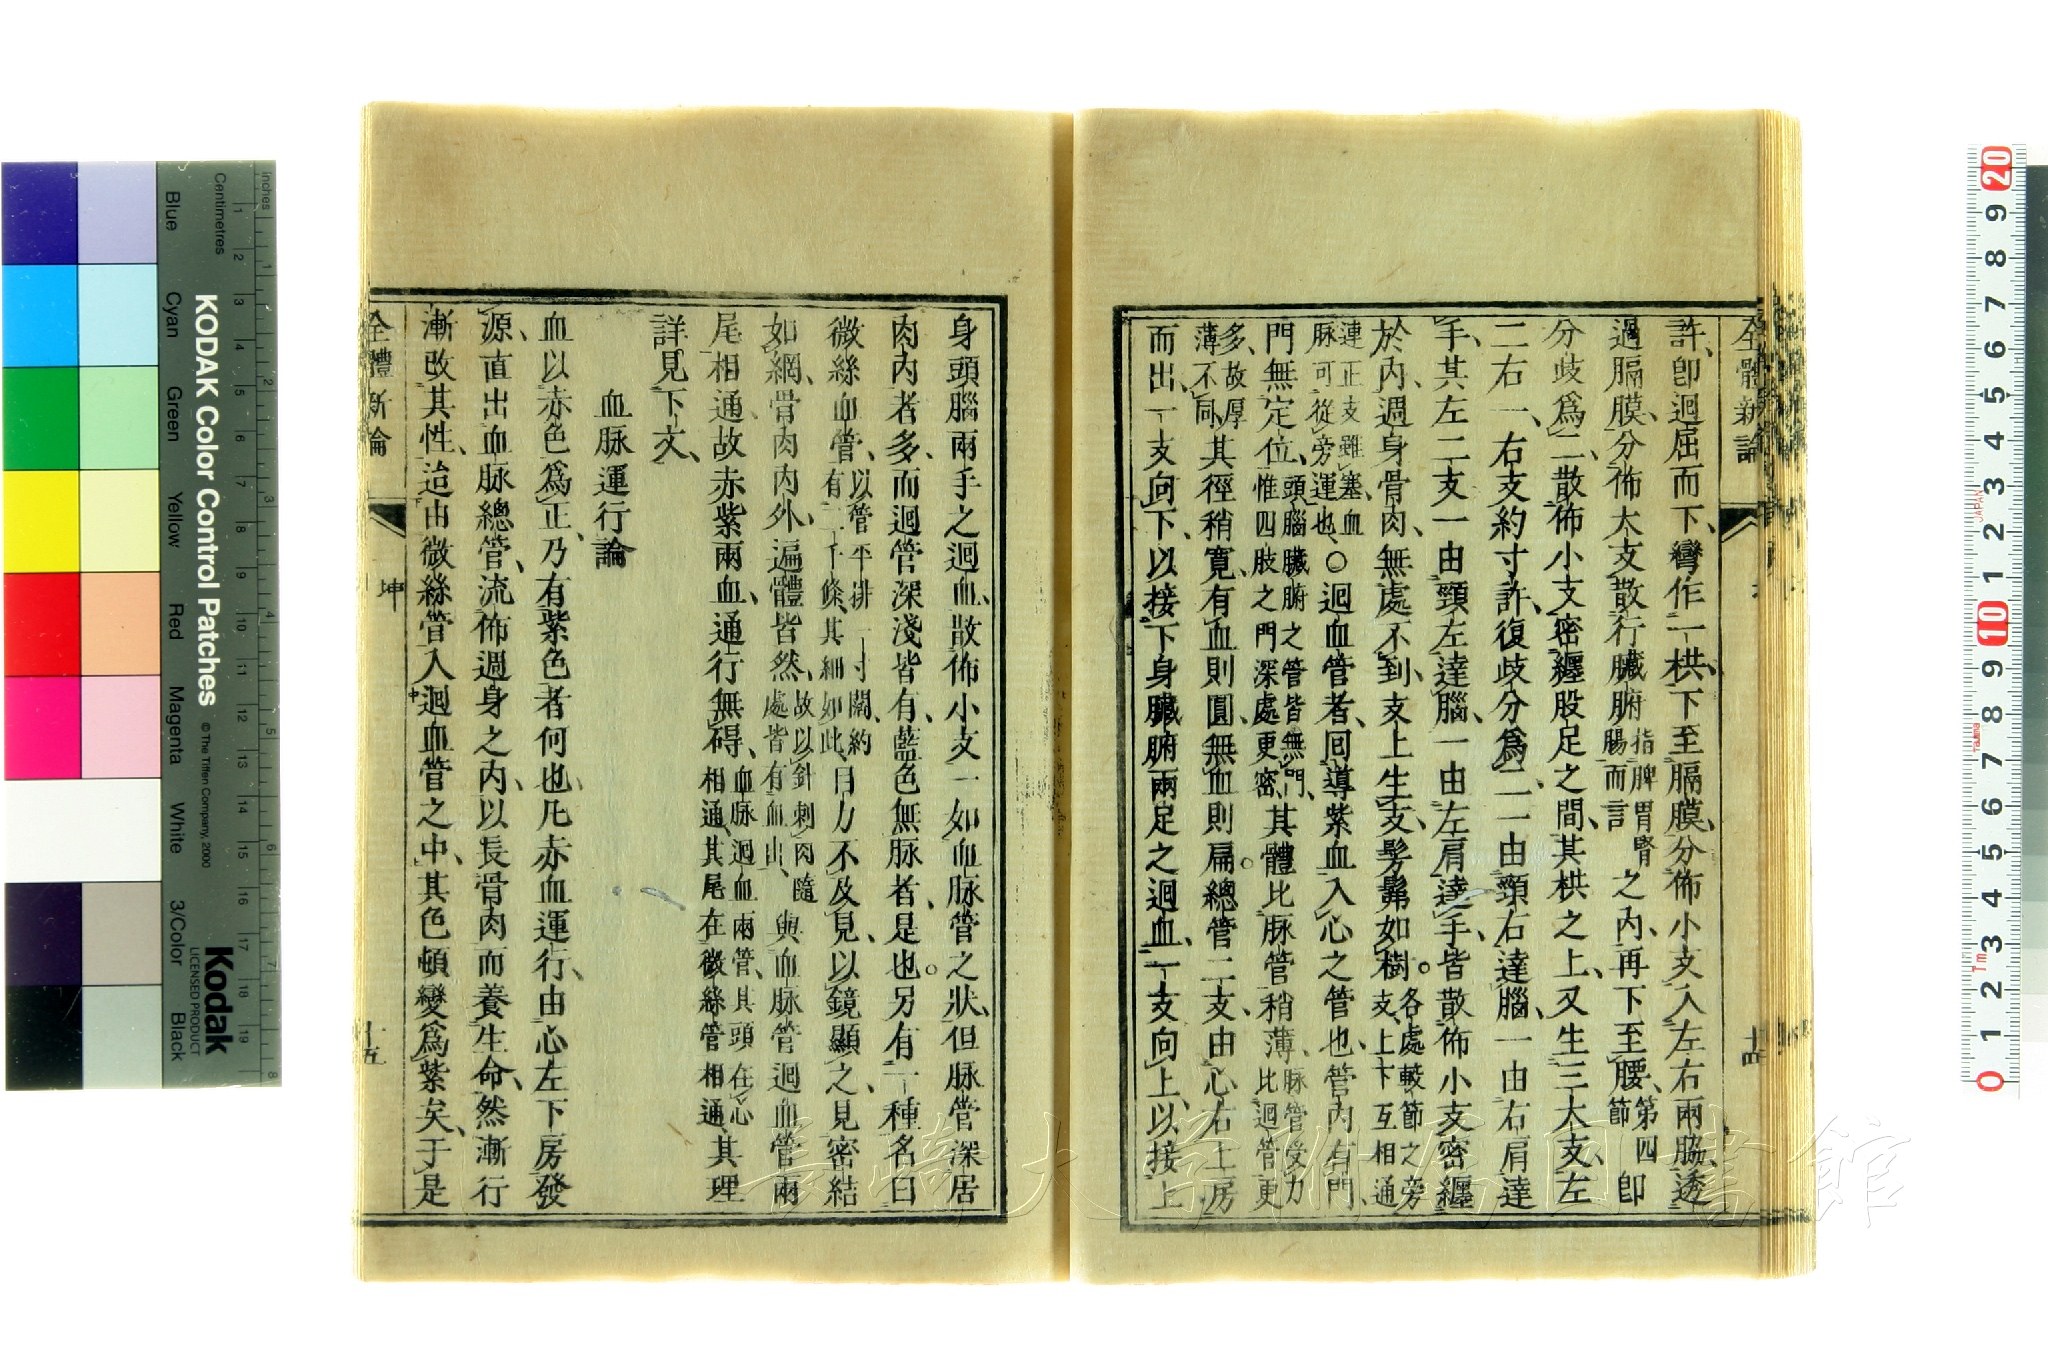 全體新論
許、卽迴屈而下、彎作一栱、下至膈膜、分佈小支、入左右兩脇、透
過膈膜、分佈大支、散行臟腑指脾胃腎腸而言之內、再下至腰、第四節卽
分歧爲二、散佈小支、密纏股足之間、其栱之上、又生三大支、左
二右一、右支約寸許、復歧分爲二、一由頸右達腦、一由右肩達
手、其左二支一由頸左達腦、一由左肩達手、皆散佈小支密纏
於內、週身骨肉、無處不到、支上生支、髣髴如樹。各處較節之旁支、上下互相通
連正支雖塞、血脉可從旁運也、○迴血管者、囘導紫血入心之管也、管內有門、
門無定位、惟四肢之門深處更密、頭腦臟腑之管皆無門、其體比脉管稍薄、脉管受力比迴管更
多、故厚薄不同、其徑稍寬、有血則圓、無血則扁。總管二支、由心右上房
而出、一支向下、以接下身臟腑兩足之迴血、一支向上、以接上
身頭腦兩手之迴血、散佈小支一如血脉管之狀、但脉管深居
肉內者多、而迴管深淺皆有、藍色無脉者、是也。另有一種名曰
微絲血管、以管平排一寸闊、約有二千條、其細如此、目力不及見、以鏡顯之、見密結
如網、骨肉內外、遍體皆然、故以針刺肉隨處皆有血出、與血脉管迴血管兩
尾相通、故赤紫兩血、通行無碍、血脉迴血兩管、其頭在心相通、其尾在微絲管相通、其理
詳見下文、
血脉運行論
血以赤色爲正、乃有紫色者何也、凡赤血運行、由心左下房發
源、直出血脉總管、流佈週身之內、以長骨肉而養生命、然漸行
漸改其性、迨由微絲管入迴血管之中、其色頓變爲紫矣、于是
全體新論
坤
十五
KODAK Color Control Patches
© The Tiffen Company, 2000
Kodak
LICENSED PRODUCT
Centimetres
inches
Blue
Cyan
Green
Yellow
Red
Magenta
White
3/Color
Black
長崎大学附属図書館